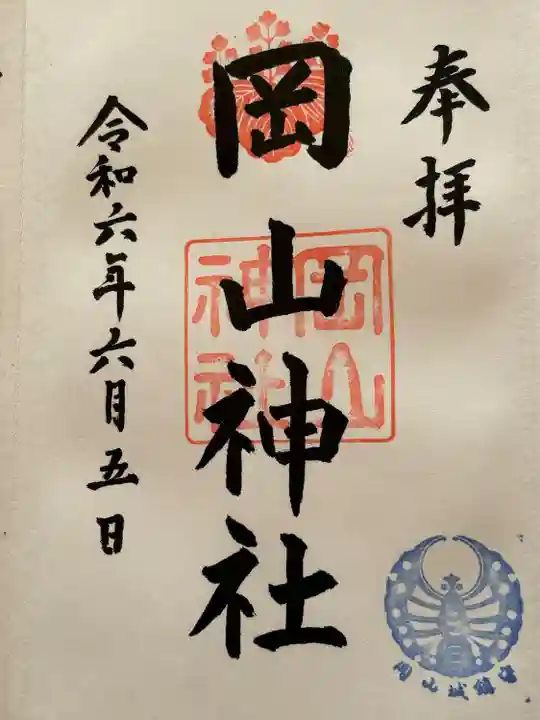 奉拝
岡山神社
岡山神社
令和六年六月五日
岡山城鎮守